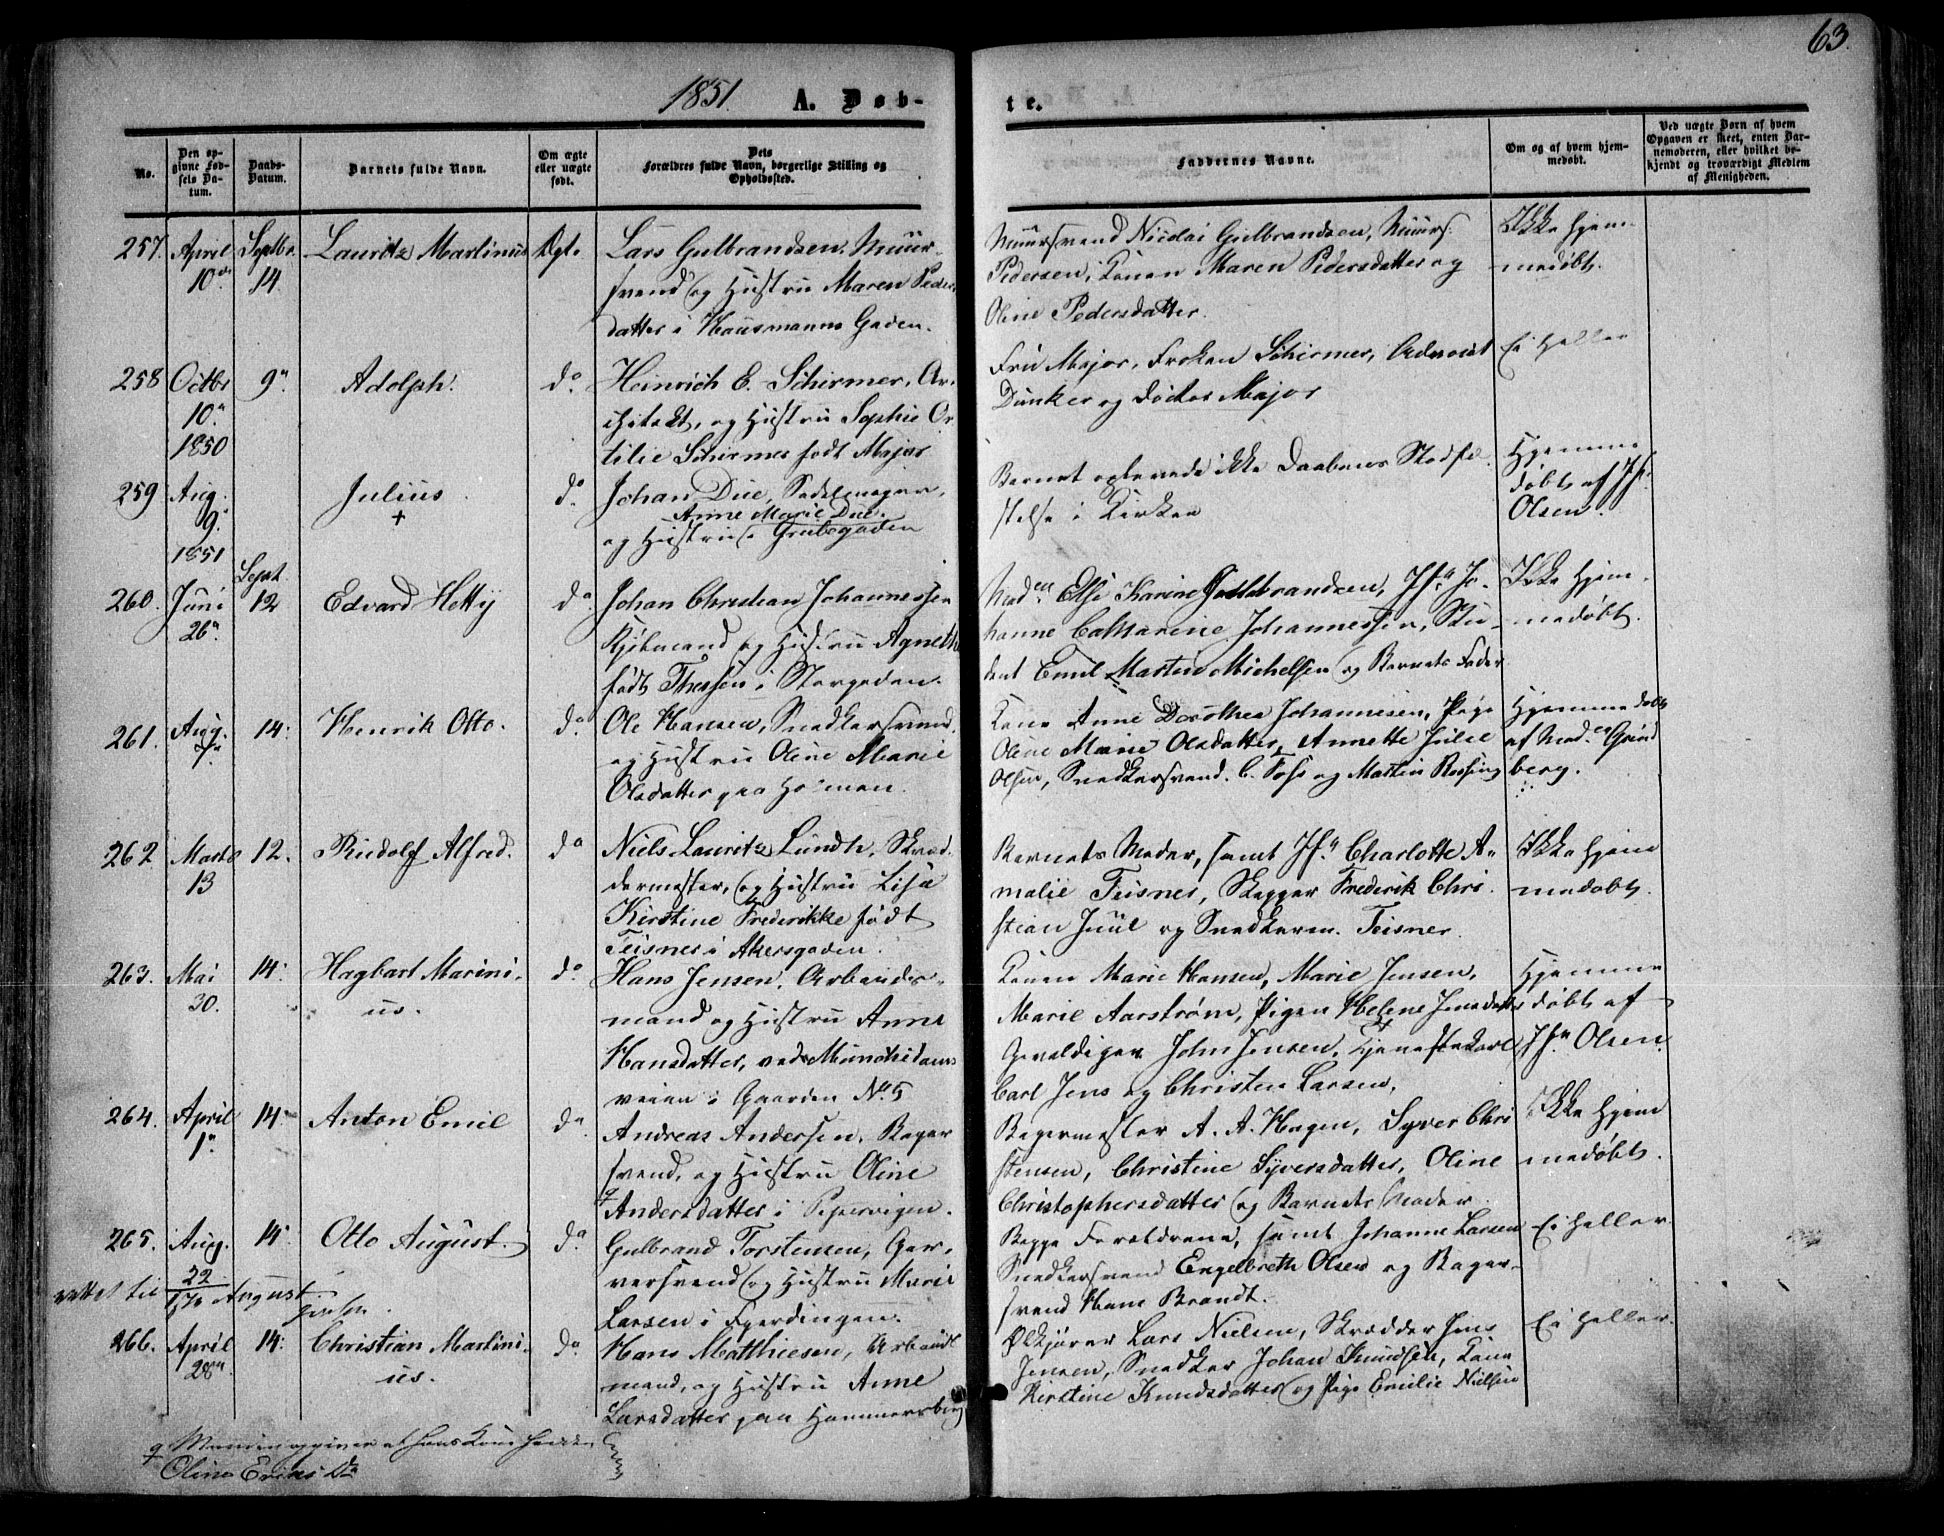 63.
1851. A. Døb-
te.
No.
Den op-
givne Fød-
sels Da-
tum.
Daabs-
Datum.
Barnets fulde Navn.
Om ægte
eller uægte
født.
Dets
Forældres fulde Navn, borgerlige Stilling og
Opholdssted.
Faddernes Navne.
Om og af hvem hjem-
medøbt.
Ved uægte Børn af hvem
Opgaven er skeet, enten Bar-
nemoderen, eller hvilket be-
kjendt og troværdigt Medlem
af Menigheden.
257. April 10de Septbr. 14. Lauritz Martinus Ægt.
Lars Gulbrandsen, Muur-
svend og Hustru Maren Peders
datter i Hausmanns Gaden.
Muursvend Nicolai Gulbrandsen, Muurs.
Pedersen, Konen Maren Pedersdatter og
Oline Pedersdatter.
Ikke hjem-
medøbt.
258 Octbr 10. 1850 9. Adolph. do
Heinrich E. Schirmer, Ar-
chitekt, og Hustru Sophie Ot-
tilie Schirmer født Major
Fru Major, Frøken Schirmer, Advocat
Dunker og Doctor Major
Ei heller
259 Aug. 9. 1851 Julius + do
Johan Due, Sadelmager,
Anne Marie Due.
og Hustru i Grubegaden
Barnet oplevede ikke Daabens Stadfæ-
stelse i Kirken
Hjemme
døbt af Jfr.
Olsen.
260. Juni 26 Sept. 12 Edvard Hettÿ do
Johan Christian Johannessen
Kjøbmand og Hustru Agnethe
født Thessen i Storgaden.
Maden Else Karine Guldbrandsen, Jfr Jo-
hanne Catharine Johannessen, Stu-
dent Emil Martin Michelsen og Barnets Fader
Ikke hjem-
medøbt.
261. Aug. 7 14. Henrik Otto. do
Ole Hansen, Snedkersvend
og Hustru Oline Marie
Olsdatter paa
Kone Anne Dorothea Johannesen, Pige
Oline Marie Olsdatter, Annette Julie
Olsen, Snedkersvend. C. Foss og Martin Rossing
Hjemmedøbt
af Maden Grønd
berg.
262 Marts 13 12. Rudolf Alfred. do
Niels Lauritz Lundh, Skræd-
dermester, og Hustru Lisa
Kirstine Frederikke født
Teisner i Akersgaden.
Barnets Moder, samt Jfr. Charlotte A-
malie Teisner, Skipper Frederik Chri-
stian Juul og Snedkeren Teisner
Ikke hjem
medøbt.
263. Mai 30. 14. Hagbart Marini-
us. do
Hans Jensen, Arbeids-
mand og Hustru Anne
Hansdatter, ved Munchedams
veien i Gaarden No. 5
Konen Marie Hansen, Marie Jensen,
Marie Aarstrøm, Pigen Helene Jensdatter
Gevaldiger John Jensen, Tjenestekarl
Carl Jens og Christen Larsen,
Hjemme
døbt af
Jfr. Olsen.
264. April 1. 14. Anton Emil do
Andreas Andersen, Bager
svend, og Hustru Oline
Andersdatter i Pipervigen.
Bagermester A. A. Hagen, Syver Chri
stensen, Christine Syversdatter, Oline
Christophersdatter og Barnets Moder
Ikke hjem
medøbt.
265. Aug. 22 14 Otto August. do
Gulbrand Torstensen, Gar-
versvend og Hustru Marie
Larsen i Fjerdingen.
Begge Forældrene, samt Johanne Larsen
Snedkersvend Engelbreth Olsen og Bager-
svend Hans Brandt.
Ei heller
rettet til 17/8 August
266. April 28 14. Christian Martini-
us. do
Hans Matthiesen, Arbeids
mand, og Hustru Anne
Larsdatter paa Hammersborg
Ølkjører Lars Nielsen, Skrædder Jens
Jensen, Snedker Johan Knudsen, Kone
Kirstine Knudsdatter og Pige Emilie Nielsen
Ei heller
Manden opgiver at hans Kone hedder
Oline Eriksdr